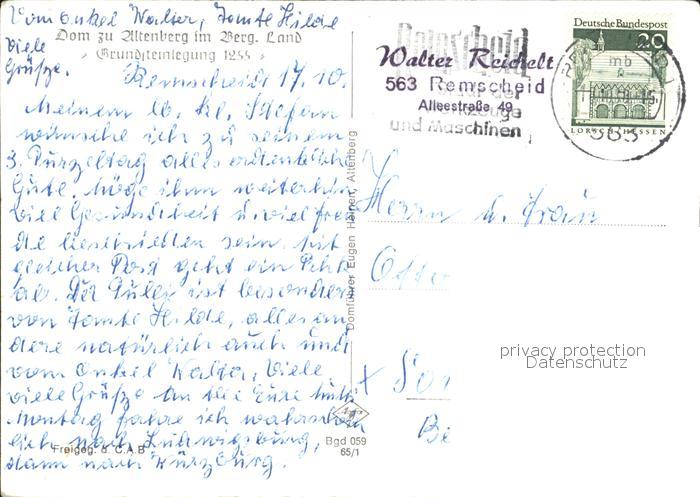 Vom Onkel Walter, Tante Hilde
viele
Grüße.
Dom zu Altenberg im Berg. Land
Grundsteinlegung 1255
Remscheid 17.10.
Meinem lb. kl. Stefan
wünsche ich zu seinem
3. Purzeltag alles erdenkliche
Gute. Möge ihm weiterhin
viel Gesundheit u viel Freu
de beschieden sein. Mit
gleicher Post geht ein
ab. Der Pulli ist besonders
von Tante Hilde, alles an
dere natürlich auch und
vom Onkel Walter, Viele
viele Grüße an alle Eure
Montag fahre ich wahrschein
lich nach Ludwigsburg,
dann nach Würzburg.
Freigeg. d. C.A.B
Domführer Eugen Heinen, Altenberg
Bgd 059
65/1
Remscheid
Walter Reichelt
563 Remscheid
Alleestraße 49
Werkzeuge
und Maschinen
Deutsche Bundespost
20
mb
563
LORSCH/HESSEN
Herrn u. Frau
privacy protection
Datenschutz